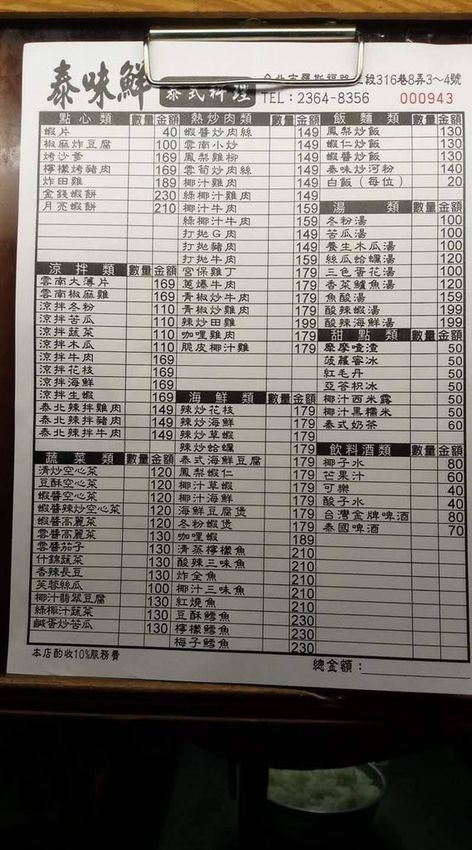 泰味鮮 泰式料理
段316巷8弄3~4號
TEL:2364-8356 000943
點心類 數量 金額
蝦片 40
椒麻炸豆腐 100
烤沙爹 169
檸檬烤豬肉 169
炸田雞 189
金錢蝦餅 230
月亮蝦餅 210
涼拌類 數量 金額
雲南大薄片 169
雲南椒麻雞 169
涼拌冬粉 110
涼拌苦瓜 110
涼拌蔬菜 110
涼拌木瓜 110
涼拌牛肉 169
涼拌花枝 169
涼拌海鮮 169
涼拌生蝦 169
泰北辣拌雞肉 149
泰北辣拌豬肉 149
泰北辣拌牛肉 149
蔬菜類 數量 金額
清炒空心菜 120
豆酥空心菜 120
蝦醬空心菜 120
蝦醬辣炒空心菜 120
蝦醬高麗菜 120
雲醬高麗菜 130
雲醬茄子 130
什錦蔬菜 130
香辣長豆 130
芙蓉絲瓜 100
椰汁翡翠豆腐 130
綠椰汁蔬菜 130
鹹蛋炒苦瓜 130
熱炒肉類 數量 金額
蝦醬炒肉絲 149
雲南小炒 149
鳳梨雞柳 149
雲筍炒肉絲 149
椰汁雞肉 149
綠椰汁雞肉 159
椰汁牛肉 159
綠椰汁牛肉 159
打拋G肉 149
打拋豬肉 149
打拋牛肉 159
宮保雞丁 179
蔥爆牛肉 179
青椒炒牛肉 179
青椒炒雞肉 179
辣炒田雞 179
咖哩雞肉 179
脆皮椰汁雞 179
海鮮類 數量 金額
辣炒花枝 179
辣炒海鮮 179
辣炒草蝦 179
辣炒蛤蠣 179
泰式海鮮豆腐 179
鳳梨蝦仁 179
椰汁草蝦 179
椰汁海鮮 179
海鮮豆腐煲 179
冬粉蝦煲 179
咖哩蝦 189
清蒸檸檬魚 210
酸辣三味魚 210
炸全魚 210
椰汁三味魚 210
紅燒魚 210
豆酥鱈魚 210
檸檬鱈魚 210
梅子鱈魚 210
飯麵類 數量 金額
鳳梨炒飯 130
蝦仁炒飯 130
蝦醬炒飯 130
泰味炒河粉 140
白飯(每位) 20
湯類 數量 金額
冬粉湯 100
苦瓜湯 100
養生木瓜湯 100
絲瓜蛤蠣湯 120
三色蛋花湯 100
香菜鱸魚湯 120
魚酸湯 159
酸辣蝦湯 199
酸辣海鮮湯 199
甜點類 數量 金額
摩摩喳喳 50
菠蘿蜜冰 50
紅毛丹 50
亞荅枳冰 50
椰汁西米露 50
椰汁黑糯米 50
泰式奶茶 60
飲料酒類 數量 金額
椰子水 80
芒果汁 60
可樂 40
酸子水 40
台灣金牌啤酒 80
泰國啤酒 70
本店酌收10%服務費
總金額: